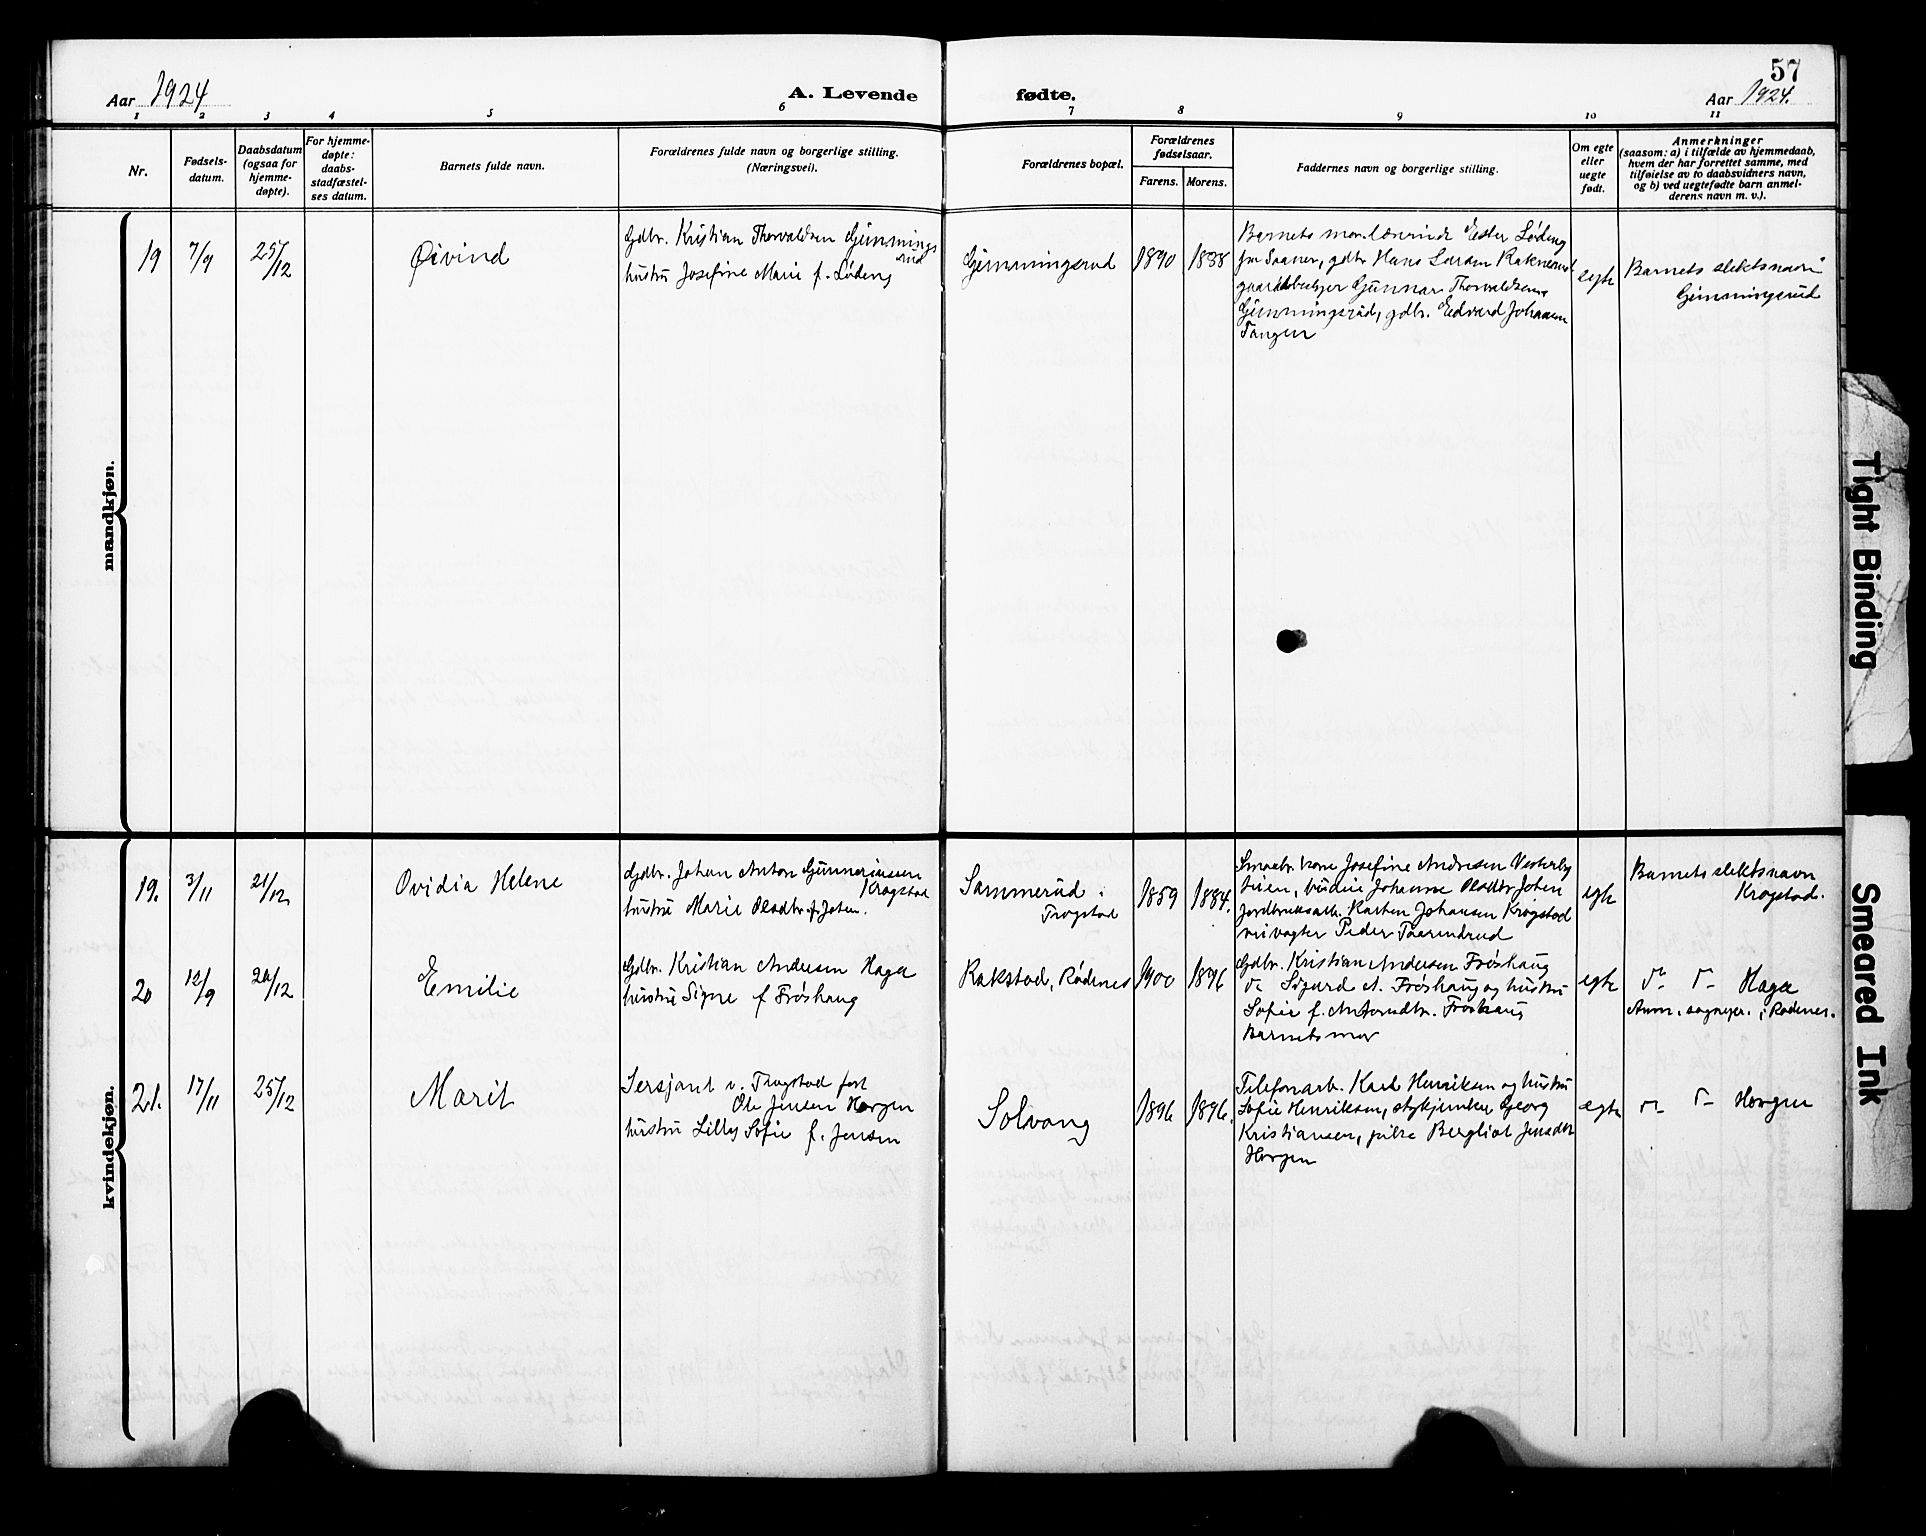 57
Aar 1924
A. Levende
fødte.
Aar 1924.
1 2 3 4 5 6 7 8 9 10 11
Nr.
Fødsels-
datum.
Daabsdatum
(ogsaa for
hjemme-
døpte).
For hjemme-
døpte:
daabs-
stadfæstel-
ses datum.
Barnets fulde navn.
Forældrenes fulde navn og borgerlige stilling.
(Næringsvei).
Forældrenes bopæl.
Forældrenes
fødselsaar.
Farens. Morens.
Faddernes navn og borgerlige stilling.
Om egte
eller
uegte
født.
Anmerkninger
(saasom: a) i tilfælde av hjemmedaab,
hvem der har forrettet samme, med
tilføielse av to daabsvidners navn,
og b) ved uegtefødte barn anmel-
derens navn m. v.).
mandkjøn.
19
7/9
25/12
Øivind
Gdbr. Kristian Thorvaldsen Gimmings
rud
hustru Josefine Marie f. Løding
Gimmingsrud
1890
1888
Barnets mor, lærerinde Ester Løding
fra Saaner, gdbr. Hans Larsen
gaardbestyrer Gunnar Thorvaldsen
Gimmingsrud, gdbr. Edvard Johansen
Tangen
egte
Barnets slektsnavn
Gimmingsrud
kvindekjøn.
19.
3/11
21/12
Ovidia Helene
Gdbr. Johan Anton Gunneriussen
Krogstad
hustru Marie Olsdtr. f. Joten.
Sammerud
Trogstad
1859
1884.
Smaabr. kone Josefine Andresen Vesterby
Johanne Olsdtr. Joten
jordbruksarb. Karsten Johansen Krogstad
veivogter Peder
egte
Barnets slektsnavn
Krogstad.
20
12/9
26/12
Emilie
Gdbr. Kristian Andersen Haga
hustru Signe f. Frøshaug
Rakstad, Rødenes
1900
1896
Gdbr. Kristian Andersen Frøshaug
do Sigurd A. Frøshaug og hustru
Sofie f. Antonsdtr. Frøshaug
Barnets mor
egte
Haga
Anm. sognepr. i Rødenes.
21.
17/11
25/12
Marit
Sersjant v. Trogstad fort
Ole Jensen Horgen
hustru Lilly Sofie f. Jensen
Solvang
1896
1896.
Telefonarb. Karl Henriksen og hustru
Sofie Henriksen, stykjunker Georg
Kristiansen, pike Bergliot Jensdtr.
Horgen
egte
Horgen
Tight Binding
Smeared Ink